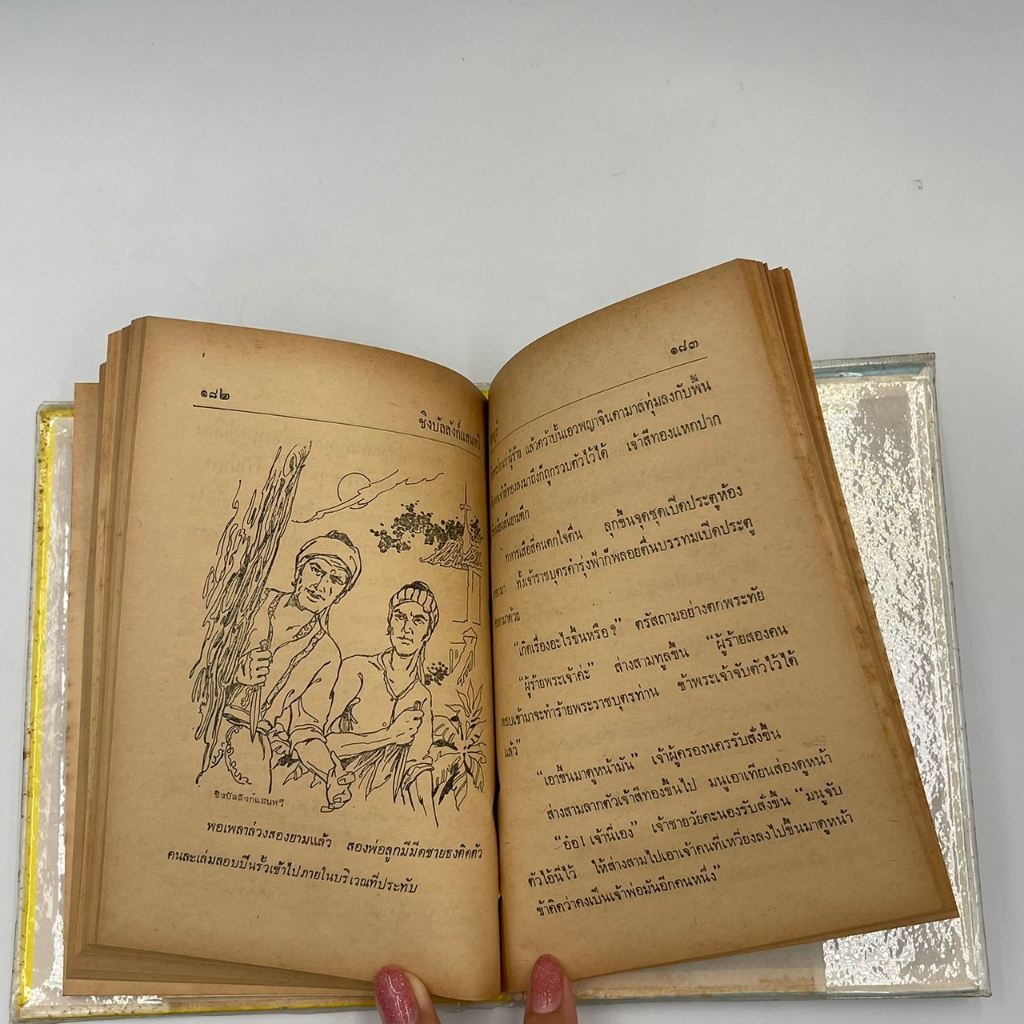 ๑๘๒
ชิงบัลลังก์แสนหวี
ชิงบัลลังก์แสนหวี
พอเพลาล่วงสองยามแล้ว สองพ่อลูกมีมีดชายธงติดตัว
คนละเล่มลอบปีนรั้วเข้าไปภายในบริเวณที่ประทับ
๑๘๓
แล้วคว้าบั้นเอวพญาจินดามาส์ทุ่มลงกับพื้น
ลงมาถึงก็ถูกรวบตัวไว้ได้ เจ้าสีทองแหกปาก
ทหารเสือสี่คนตกใจตื่น ลุกขึ้นจุดชุดเปิดประตูห้อง
ทั้งเจ้าราชบุตรคำรุ่งฟ้าก็พลอยตื่นบรรทมเปิดประตู
มาด้วย
“เกิดเรื่องอะไรขึ้นหรือ?” ตรัสถามอย่างตกพระทัย
“ผู้ร้ายพระเจ้าค่ะ” ส่างสามทูลขึ้น “ผู้ร้ายสองคน
ลอบเข้ามาจะทำร้ายพระราชบุตรท่าน ข้าพระเจ้าจับตัวไว้ได้
แล้ว”
“เอาขึ้นมาดูหน้ามัน” เจ้าผู้ครองนครรับสั่งขึ้น
ส่างสามลากตัวเจ้าสีทองขึ้นไป มนูเอาเทียนส่องดูหน้า
“อ๋อ! เจ้านี่เอง” เจ้าชายวัยคะนองรับสั่งขึ้น “มนูจับ
ตัวไอ้นี่ไว้ ให้ส่างสามไปเอาเจ้าคนที่เหวี่ยงลงไปขึ้นมาดูหน้า
ข้าคิดว่าคงเป็นเจ้าพ่อมันอีกคนหนึ่ง”